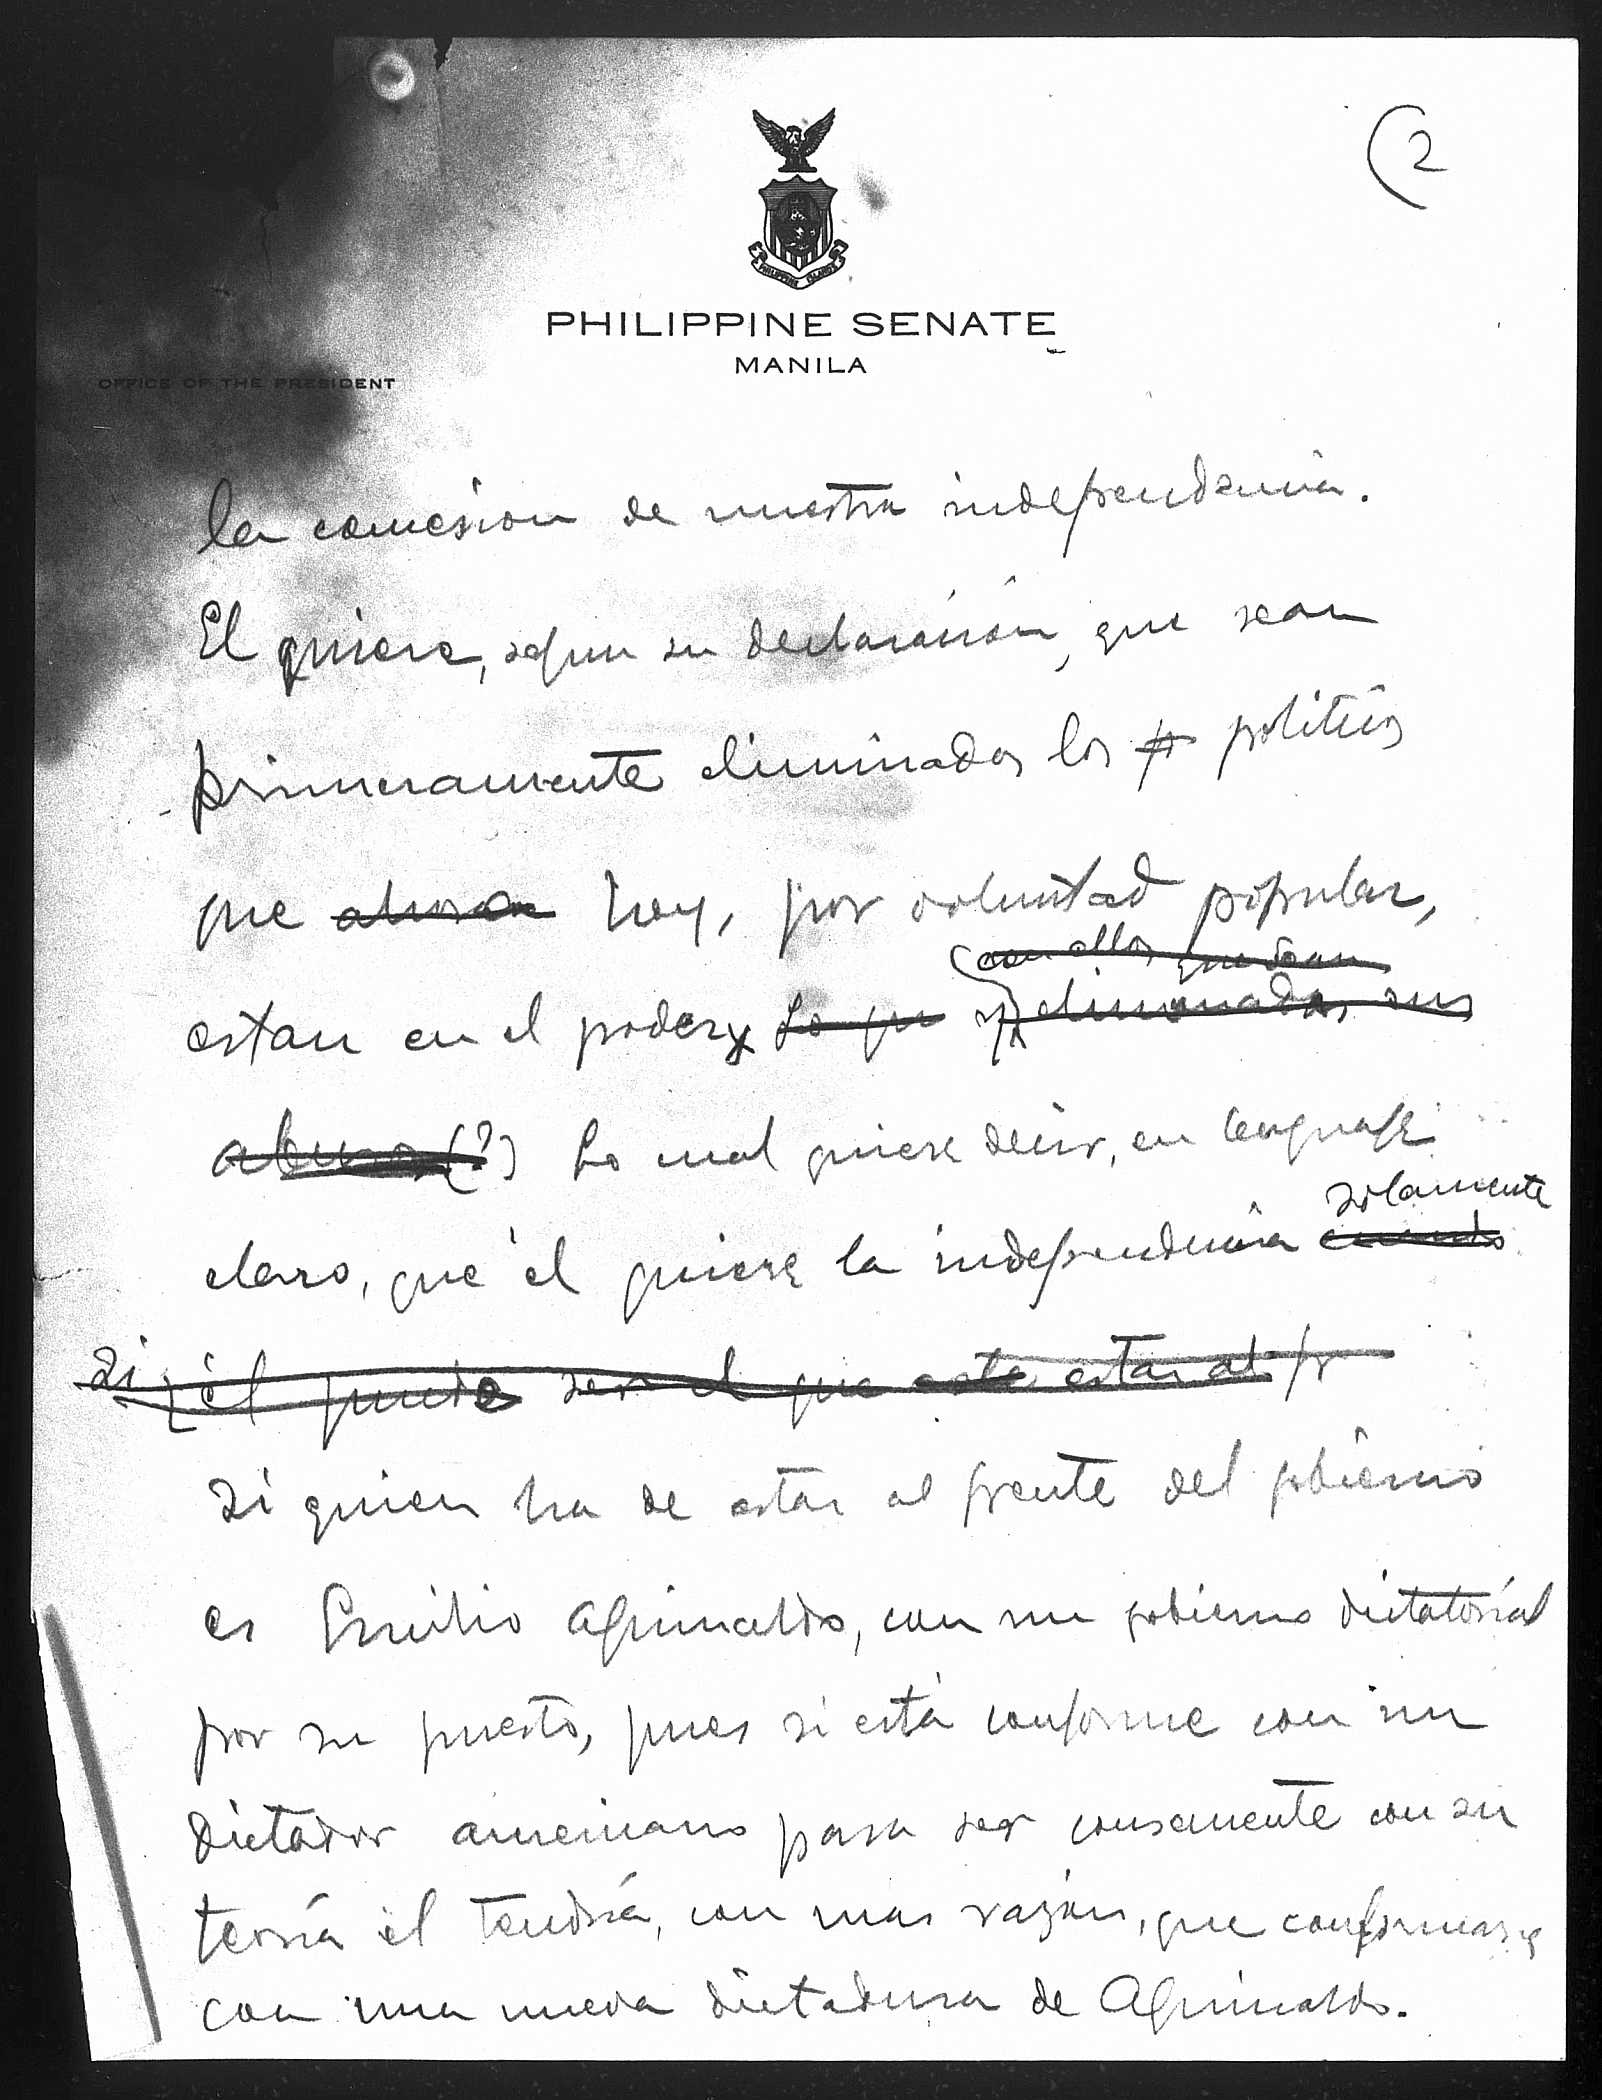 (2
PHILIPPINE ISLANDS
PHILIPPINE SENATE
MANILA
OFFICE OF THE PRESIDENT
la concesion de nuestra independencia.
El quiere, segun su declaración, que sean
primeramente eliminados los politicos
que ahora hoy, por voluntad popular,
con ellos quedan
estan en el poder, Lo que y eliminados sus
abusos (?) Lo cual quiere decir, en lenguaje
solamente
claro, que él quiere la independencia cuando
si él puede ser el que este estar al fr
si quien ha de estar al frente del gobierno
es Emilio Aguinaldo, con un gobierno dictatorial
por su puesto, pues si está conforme con un
dictador americano para ser consecuente con su
teoría él tendría, con mas razón, que conformarse
con una nueva dictadura de Aguinaldo.